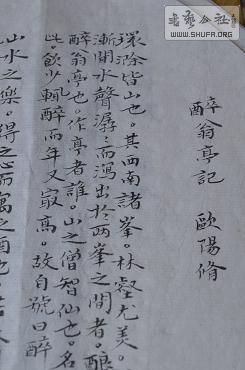 書藝公社
WWW.SHUFA.ORG
醉翁亭記 歐陽脩
環滁皆山也。其西南諸峯。林壑尤美。
漸聞水聲潺〻而瀉出於兩峯之間者。釀
醉翁亭也。作亭者誰。山之僧智仙也。名
此。飲少輒醉而年又最高。故自號曰醉
山水之樂。得之心而寓之酒也。若